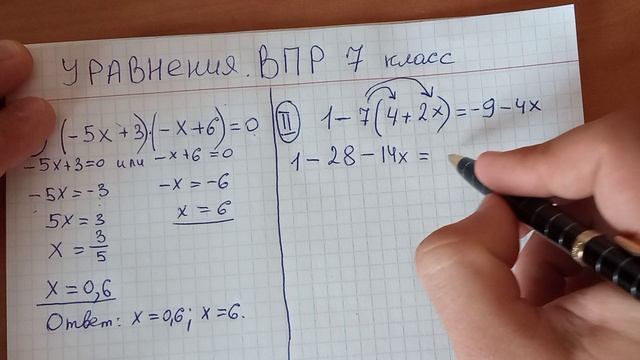 УРАВНЕНИЯ. ВПР 7 класс
(-5x+3)·(-x+6)=0
-5x+3=0 или -x+6=0
-5x=-3
-x=-6
5x=3
x=6
x=3/5
x=0,6
Ответ: x=0,6; x=6.
II 1-7(4+2x)=-9-4x
1-28-14x=